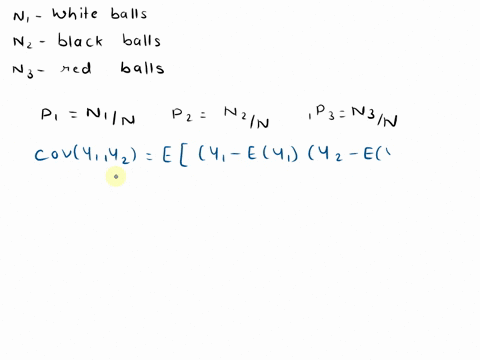 N₁ - White balls
N₂ - black balls
N₃ - red balls
P₁ = N₁/N P₂ = N₂/N , P₃ = N₃/N
COV(Y₁,Y₂) = E [ (Y₁ - E(Y₁) (Y₂ - E(